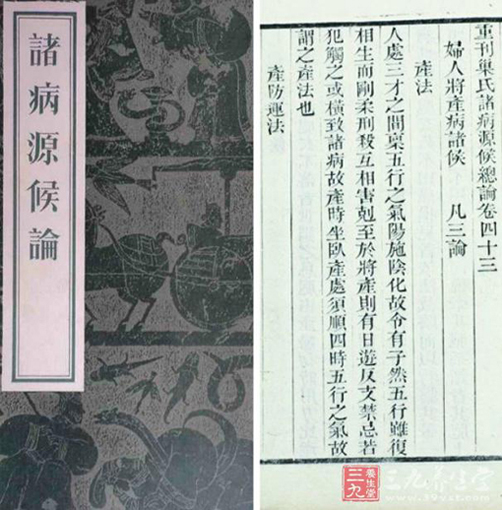 諸病源候論
重刊巢氏諸病源候總論卷四十三
婦人將產病諸候 凡三論
產法
人處三才之間稟五行之氣陽施陰化故令有子然五行雖復
相生而剛柔刑殺互相害剋至於將產則有日遊反支禁忌若
犯觸之或橫致諸病故產時坐臥產處須順四時五行之氣故
謂之產法也
產防運法
三九
養生堂
三九養生堂
www.39yst.com